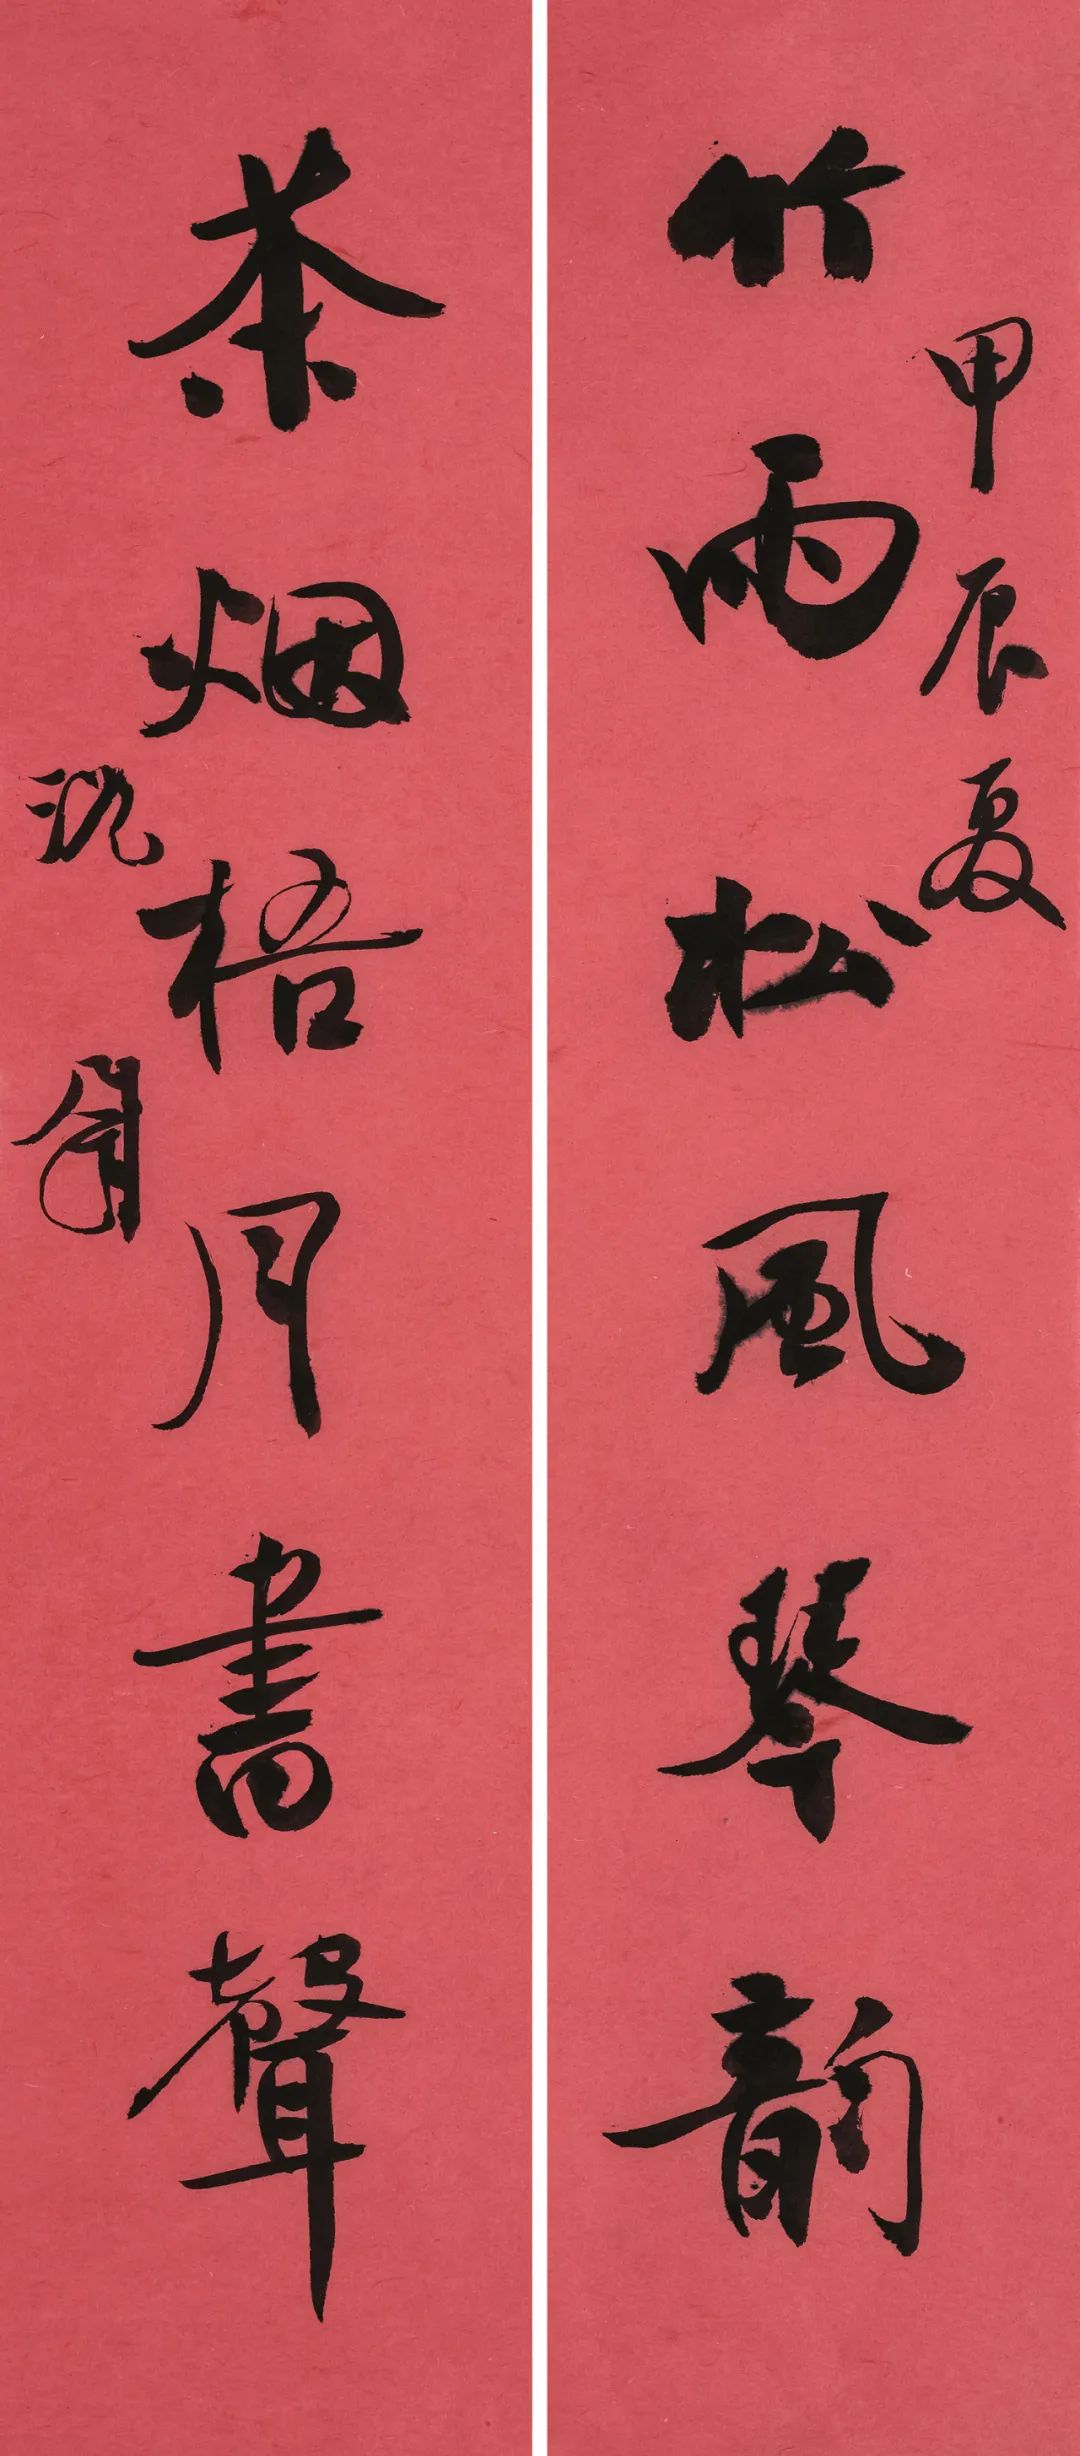 竹雨松風琴韻
甲辰夏
茶烟梧月書聲
沈